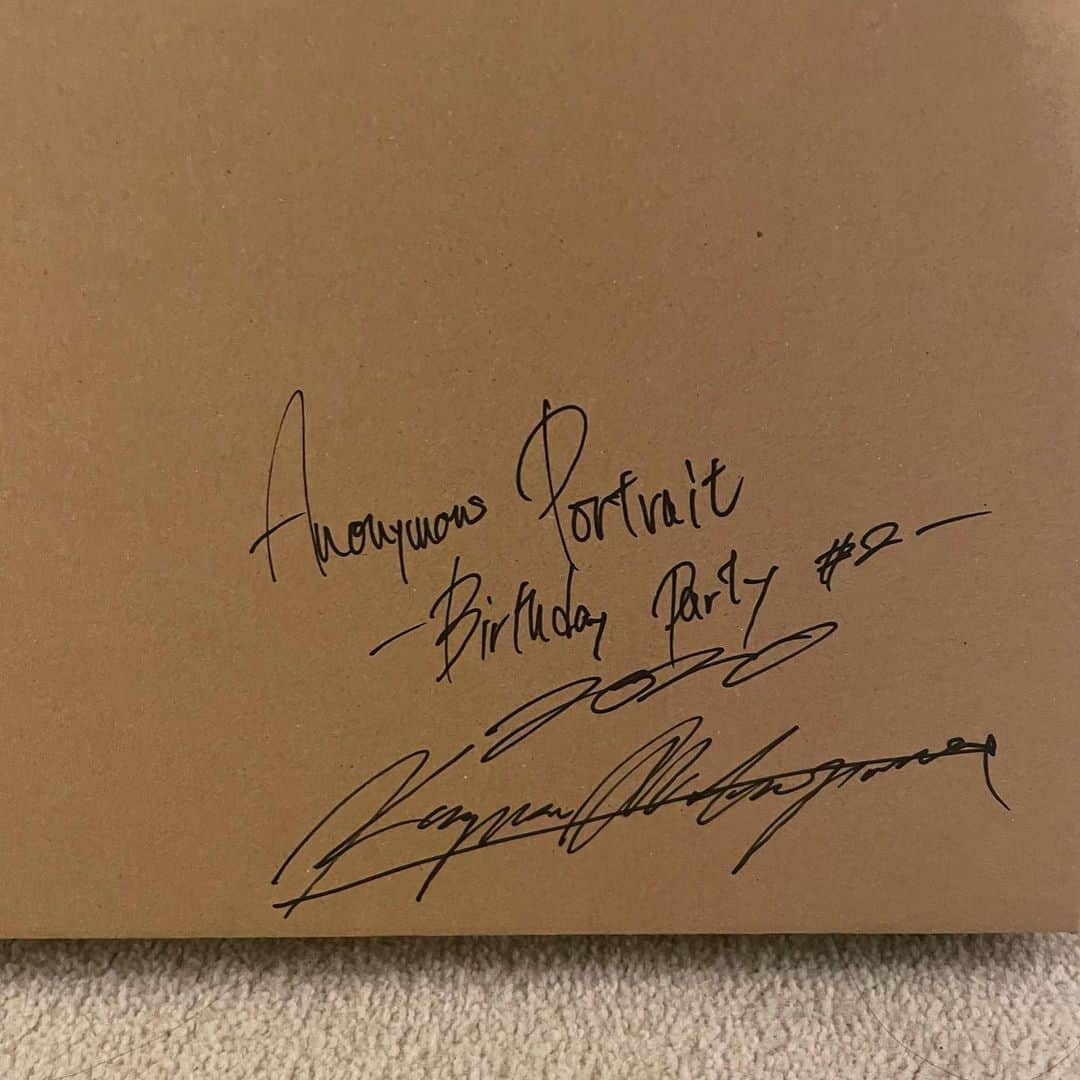 Anonymous Portrait
-Birthday Party #2-
2020